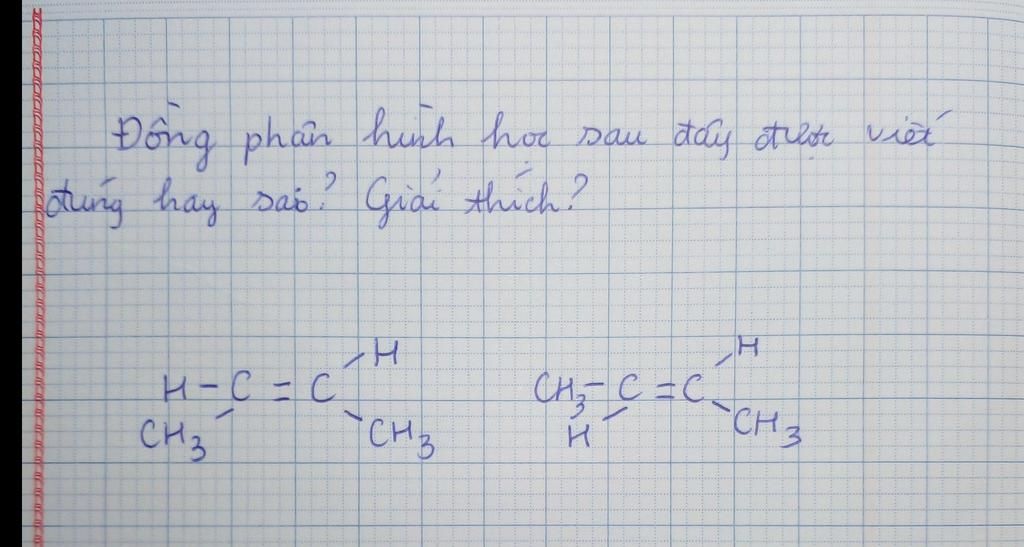 Đồng phân hình học sau đây được viết
đúng hay sao? Giải thích?
H H
H - C = C CH3 - C = C
CH3 CH3 H CH3